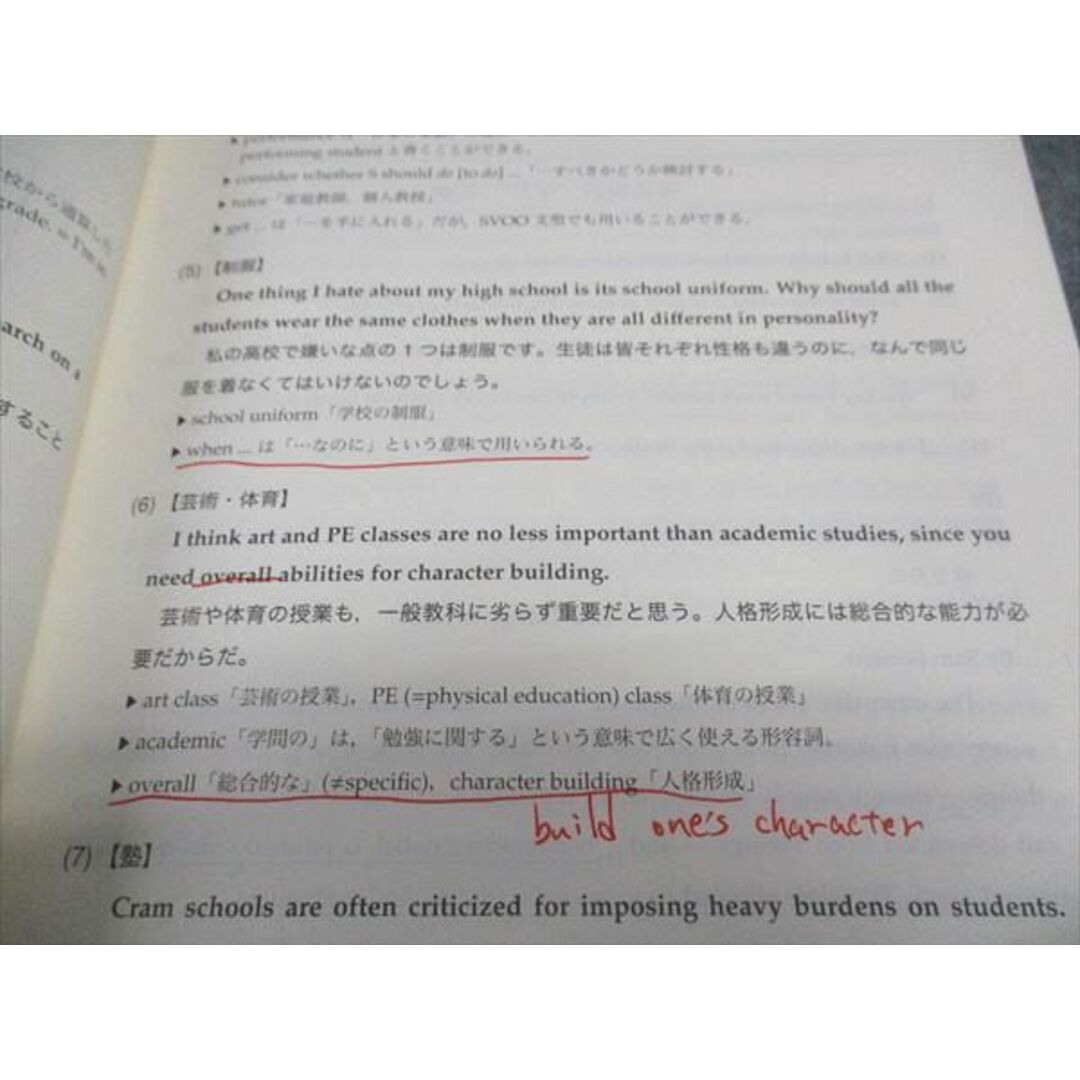 performing student と書くことができる。
▸ consider whether S should do [to do] ... 「…すべきかどうか検討する」
▸ tutor「家庭教師，個人教授」
▸ get ... は「…を手に入れる」だが，SVOO 文型でも用いることができる。
校から通算した
grade. =
(5) 【制服】
One thing I hate about my high school is its school uniform. Why should all the
students wear the same clothes when they are all different in personality?
私の高校で嫌いな点の１つは制服です。生徒は皆それぞれ性格も違うのに，なんで同じ
服を着なくてはいけないのでしょう。
▸ school uniform「学校の制服」
▸ when ... は「…なのに」という意味で用いられる。
arch on a
すること
(6) 【芸術・体育】
I think art and PE classes are no less important than academic studies, since you
need overall abilities for character building.
芸術や体育の授業も，一般教科に劣らず重要だと思う。人格形成には総合的な能力が必
要だからだ。
▸ art class「芸術の授業」，PE (=physical education) class「体育の授業」
▸ academic「学問の」は，「勉強に関する」という意味で広く使える形容詞。
▸ overall「総合的な」(≠specific)，character building「人格形成」
build one's character
(7) 【塾】
Cram schools are often criticized for imposing heavy burdens on students.